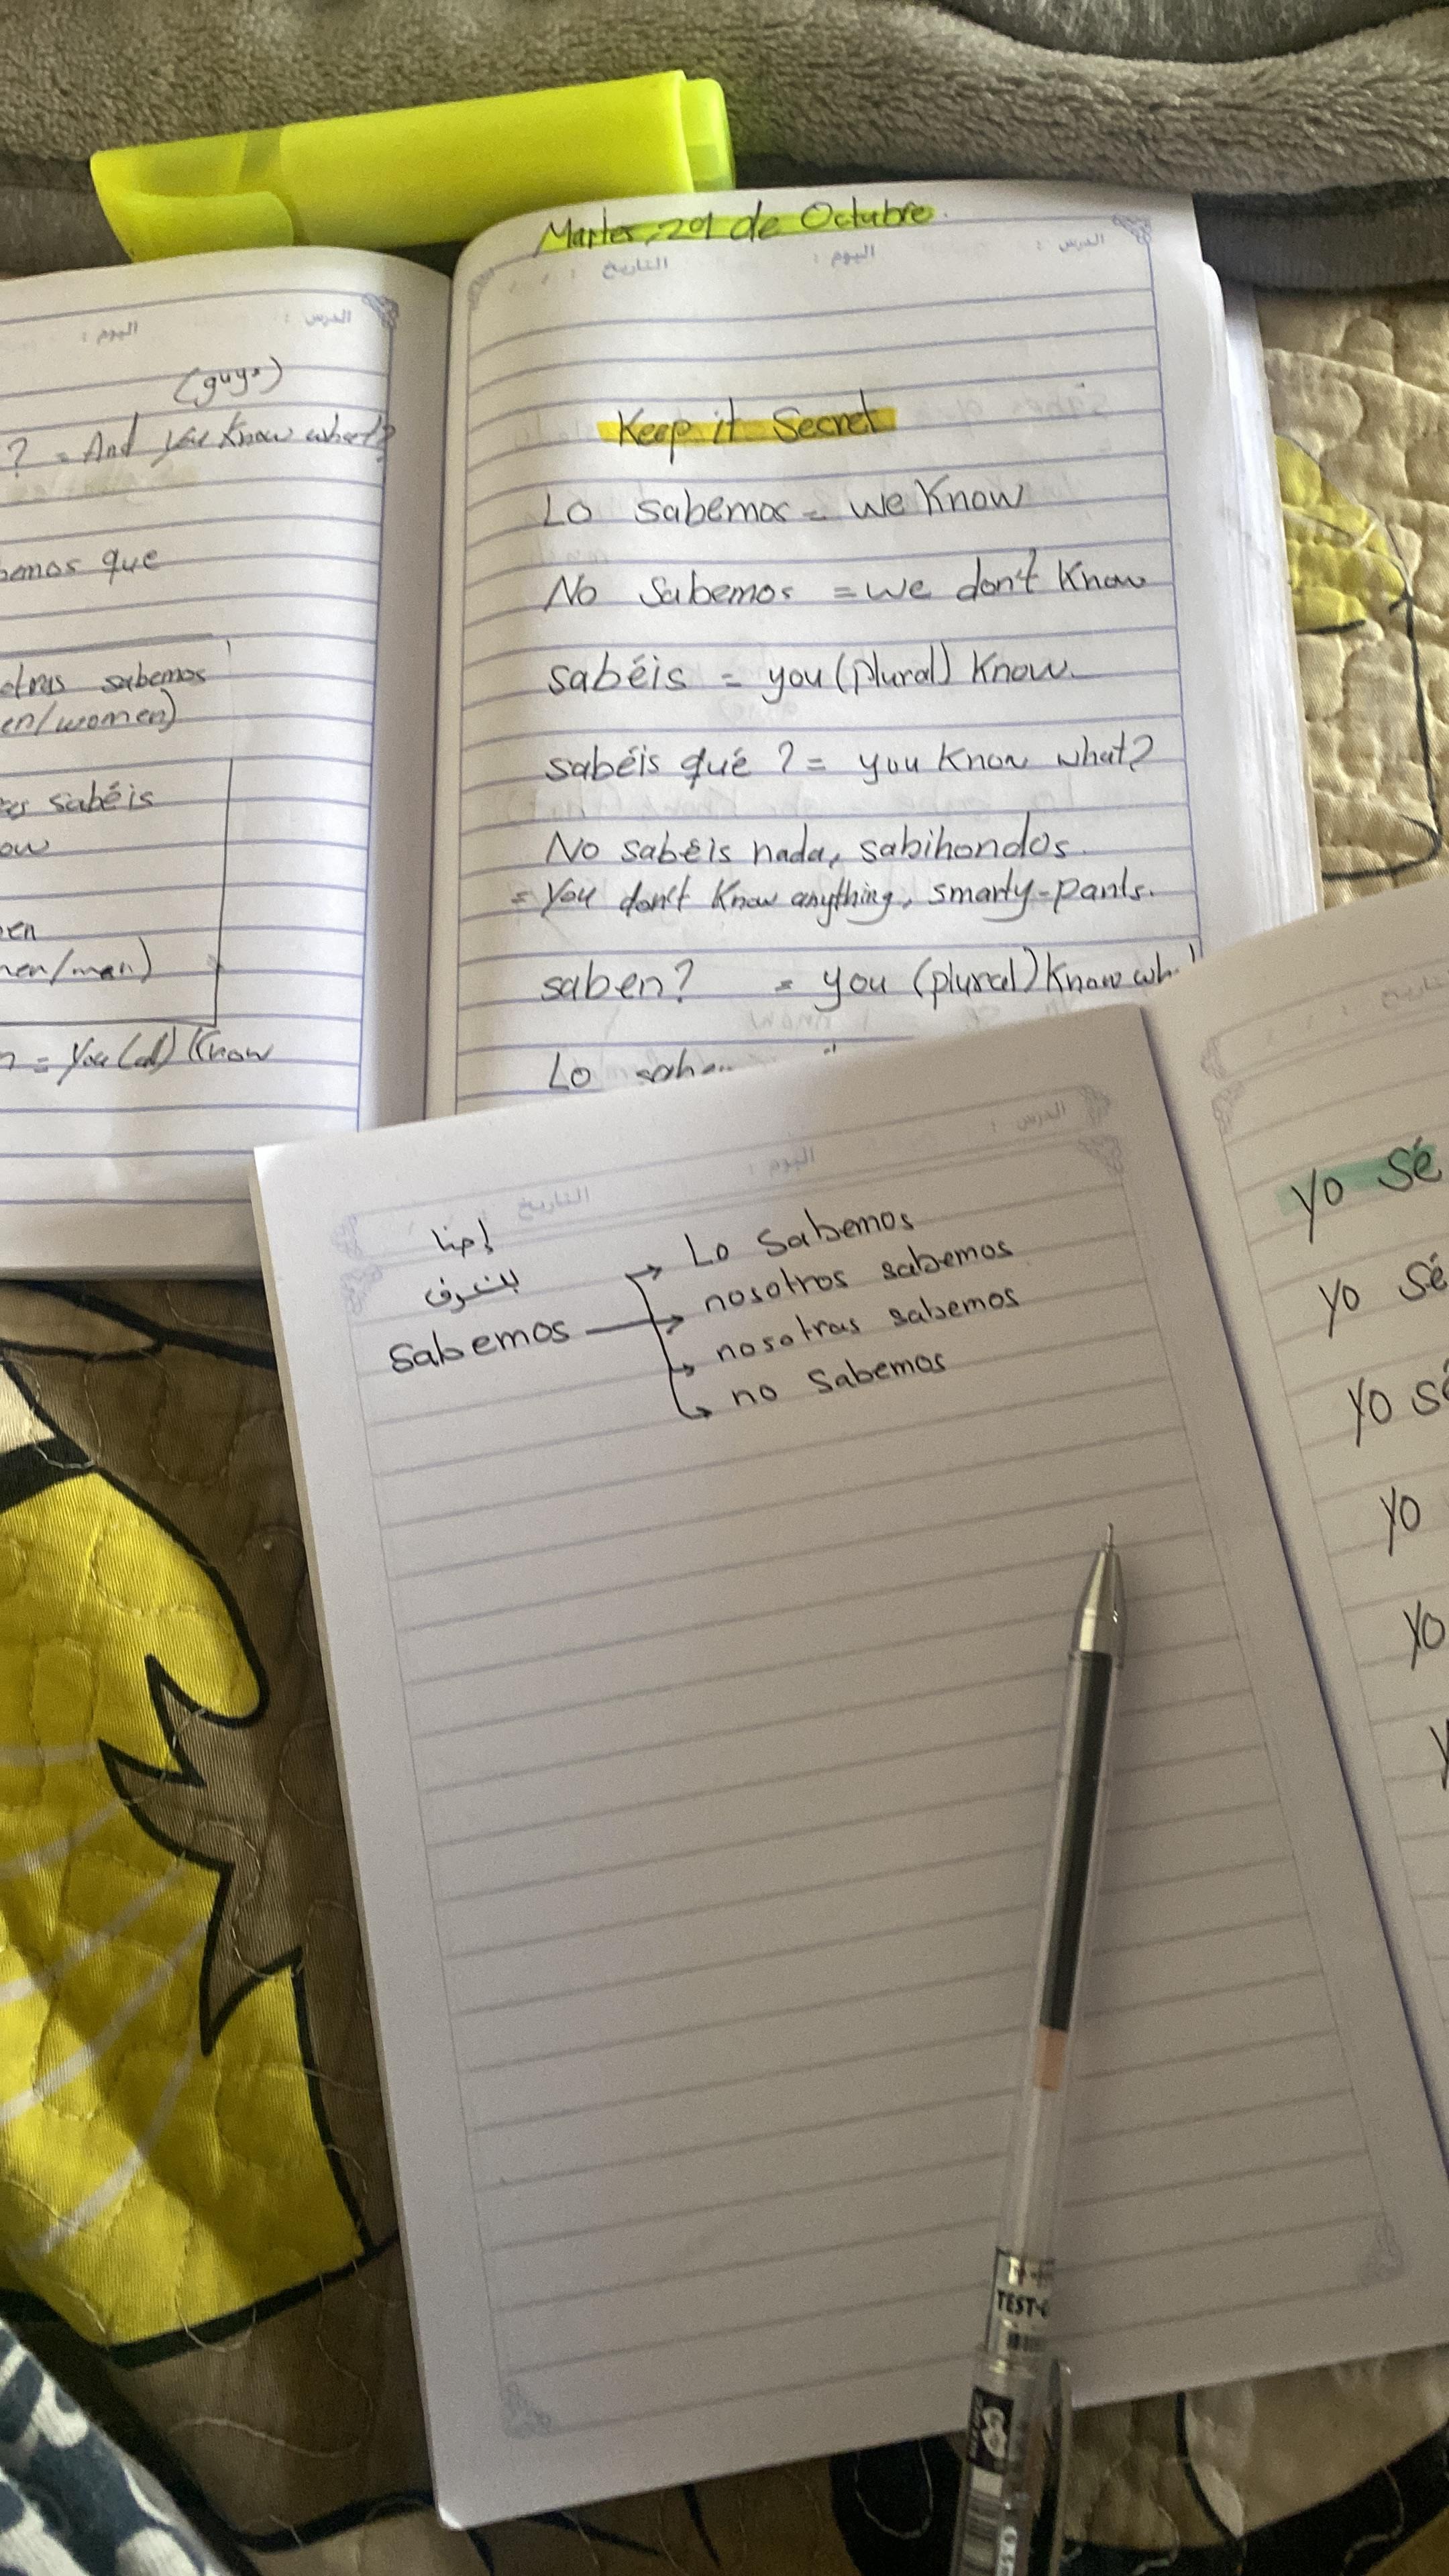 Martes, 29 de Octubre.
التاريخ : اليوم : الدرس :
Keep it Secret
Lo sabemos = we know
No sabemos = we don't know
sabéis = you (plural) know.
sabéis qué ? = you know what?
No sabéis nada, sabihondos.
= You don't know anything, smarty-pants.
saben? = you (plural) know
Lo
اليوم : الدرس :
(guys)
? = And you know what?
que
sabemos
en/women)
sabéis
ow
en
/man)
= You (all) know
التاريخ اليوم : الدرس :
إحنا
بنعرف
Sabemos
Lo Sabemos
nosotros sabemos
nosotras sabemos
no Sabemos
yo sé
yo sé
yo
yo
yo
TEST